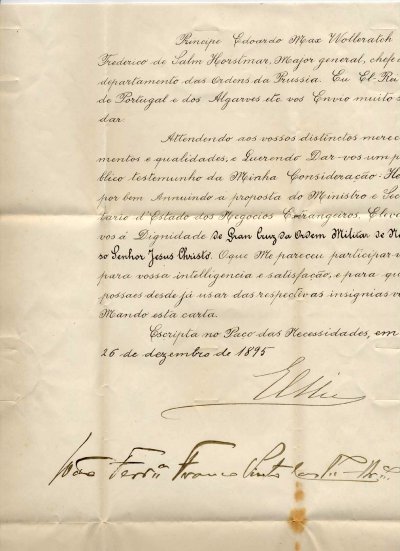 Principe Edoardo Max Wolleratch
Frederico de Salm Horstmar, Major general, chefe
departamento das Ordens da Prussia. Eu El-Rei
de Portugal e dos Algarves etc vos Envio muito s
dar.
Attendendo aos vossos distinctos mereci
mentos e qualidades, e Querendo Dar-vos um p
blico testemunho da Minha Consideração: He
por bem Annuindo a proposta do Ministro e Sec
tario d'Estado dos Negocios Estrangeiros, Eleva
vos á Dignidade de Gran Cruz da Ordem Militar de No
so Senhor Jesus Christo. O que Me pareceu participar v
para vossa intelligencia e satisfação, e para qu
possaes desde já usar das respectivas insignias v
Mando esta carta.
Escripta no Paço das Necessidades, em
26 de dezembro de 1895
El Rei
João Ferr.ª Franco Pinto Castello